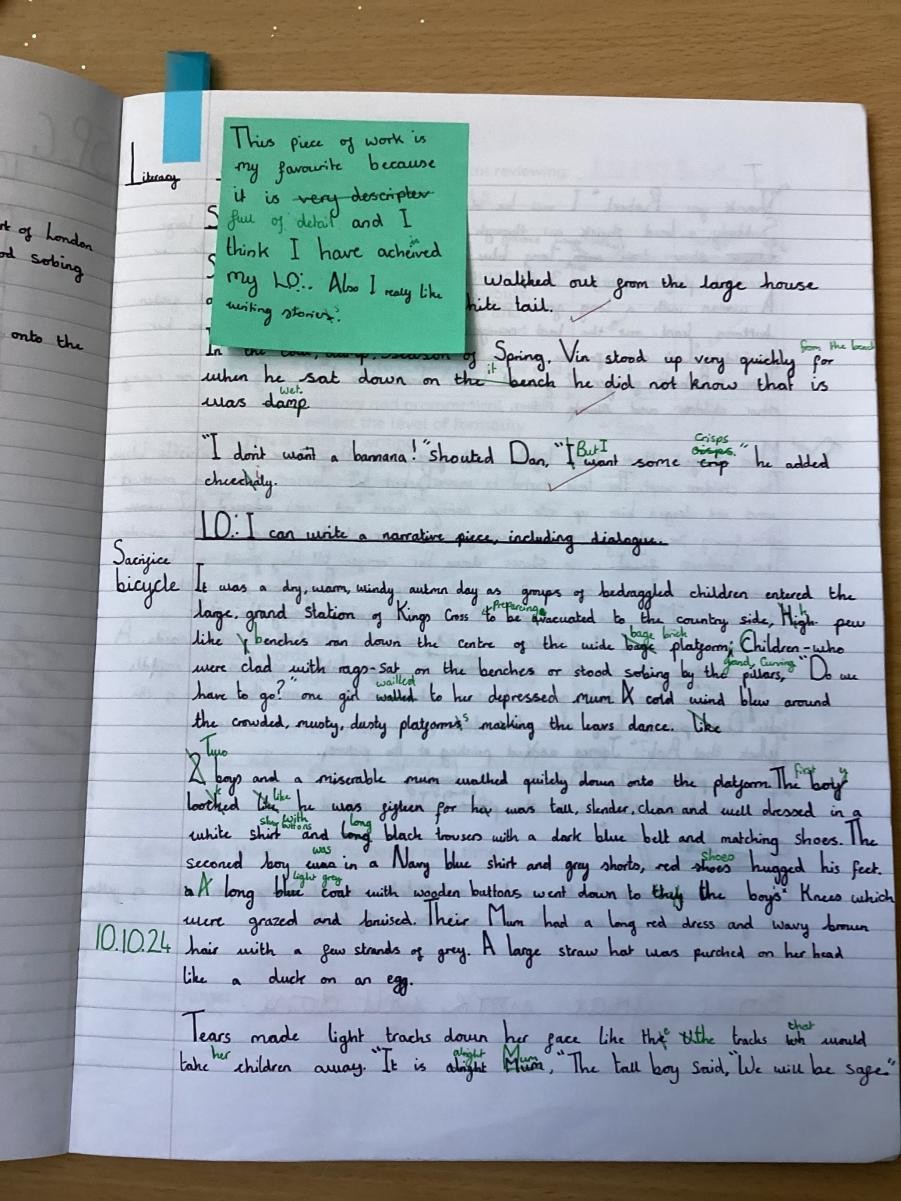 rt of London
od sobing
onto the
Literacy
This piece of work is
my favourite because
it is very descripter
full of detail and I
think I have acheived
my LO:. Also I really like
writing stories.
walked out from the large house
hite tail.
of Spring. Vin stood up very quickly from the bench for
when he sat down on the bench he did not know that it is
was damp wet.
"I don't want a bannana!" shouted Dan, "But I want some crisps. Crisps" he added
cheekily.
LO: I can write a narrative piece, including dialogue.
Sacrifice
bicycle
It was a dry, warm, windy autmn day as groups of bedraggled children entered the
large, grand Station of Kings Cross preparing to be evacuated to the country side, High pew
like benches ran down the centre of the wide bage brick platform; Children-who
were clad with rags-sat on the benches or stood sobing by the pillars, "Do we
have to go?" one girl wailled to her depressed mum A cold wind blew around
the crowded, musty, dusty platforms making the leavs dance. Like
Two boys and a miserable mum walked quitely down onto the platform. The first boy
looked like he was fifteen for he was tall, slender, clean and well dressed in a
white shirt with buttons and long black trousers with a dark blue belt and matching shoes. The
seconed boy was in a Navy blue shirt and grey shorts, red shoes hugged his feet.
A long blue light grey coat with wooden buttons went down to the boys' Knees which
were grazed and bruised. Their Mum had a long red dress and wavy brown
10.10.24
hair with a few strands of grey. A large straw hat was purched on her head
like a duck on an egg.
Tears made light tracks down her face like the tracks that would
take her children away. "It is alright Mum," The tall boy said, "We will be safe"